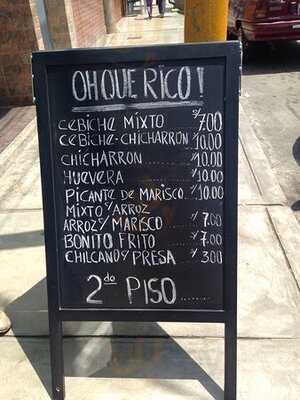 OH QUE RICO!
CEBICHE MIXTO S/7.00
CEBICHE-CHICHARRON S/10.00
CHICHARRON ........ S/10.00
HUEVERA ........ S/10.00
PICANTE DE MARISCO.. S/10.00
MIXTO Y ARROZ
ARROZ Y MARISCO .... S/7.00
BONITO FRITO ..... S/7.00
CHILCANO Y PRESA .... S/3.00
2do PISO ........